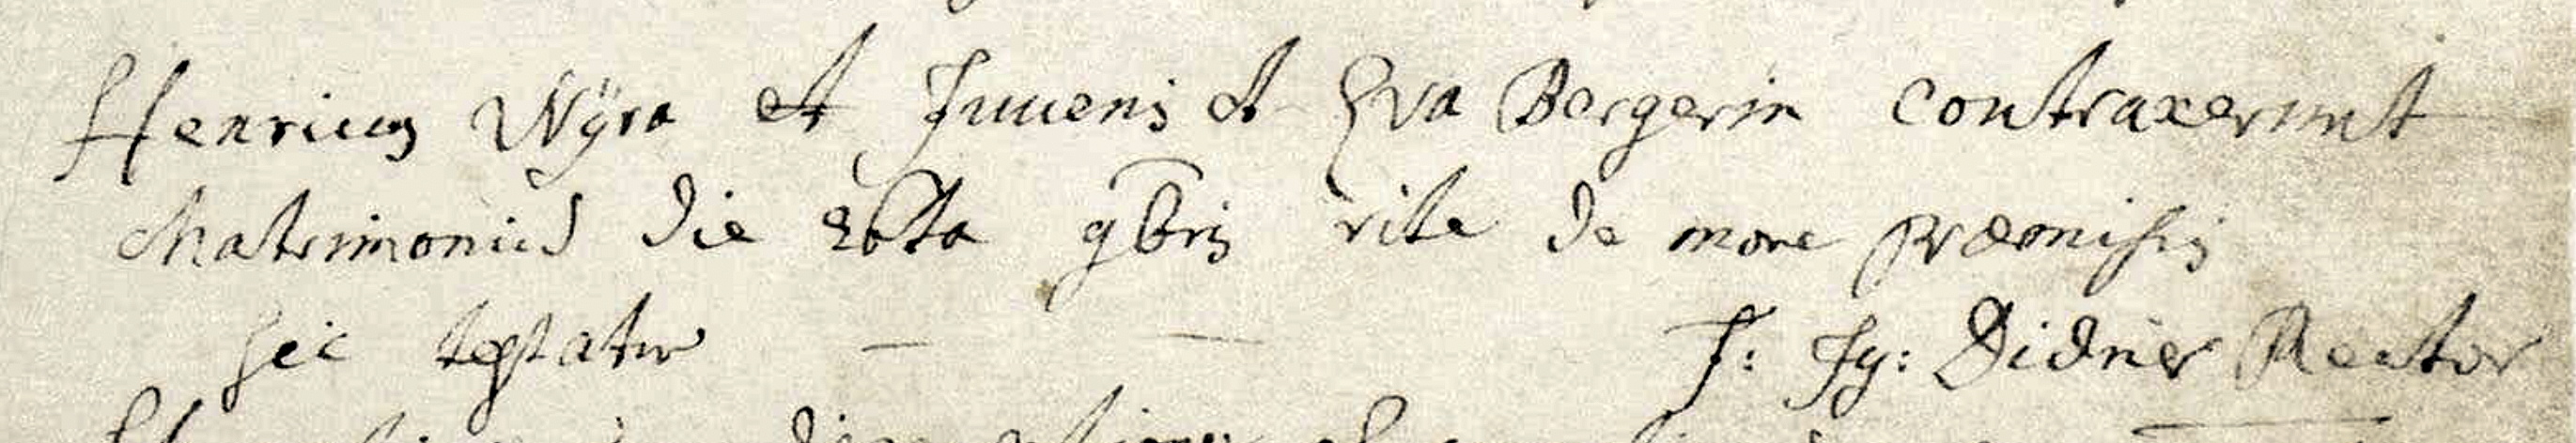 Henricus Wÿra et Juuenis et Eva Bergerin contraxerunt
Matrimoniū die 26ta 9bris rite de more præmissis
sic testatur
J: Jg: Didner Rector